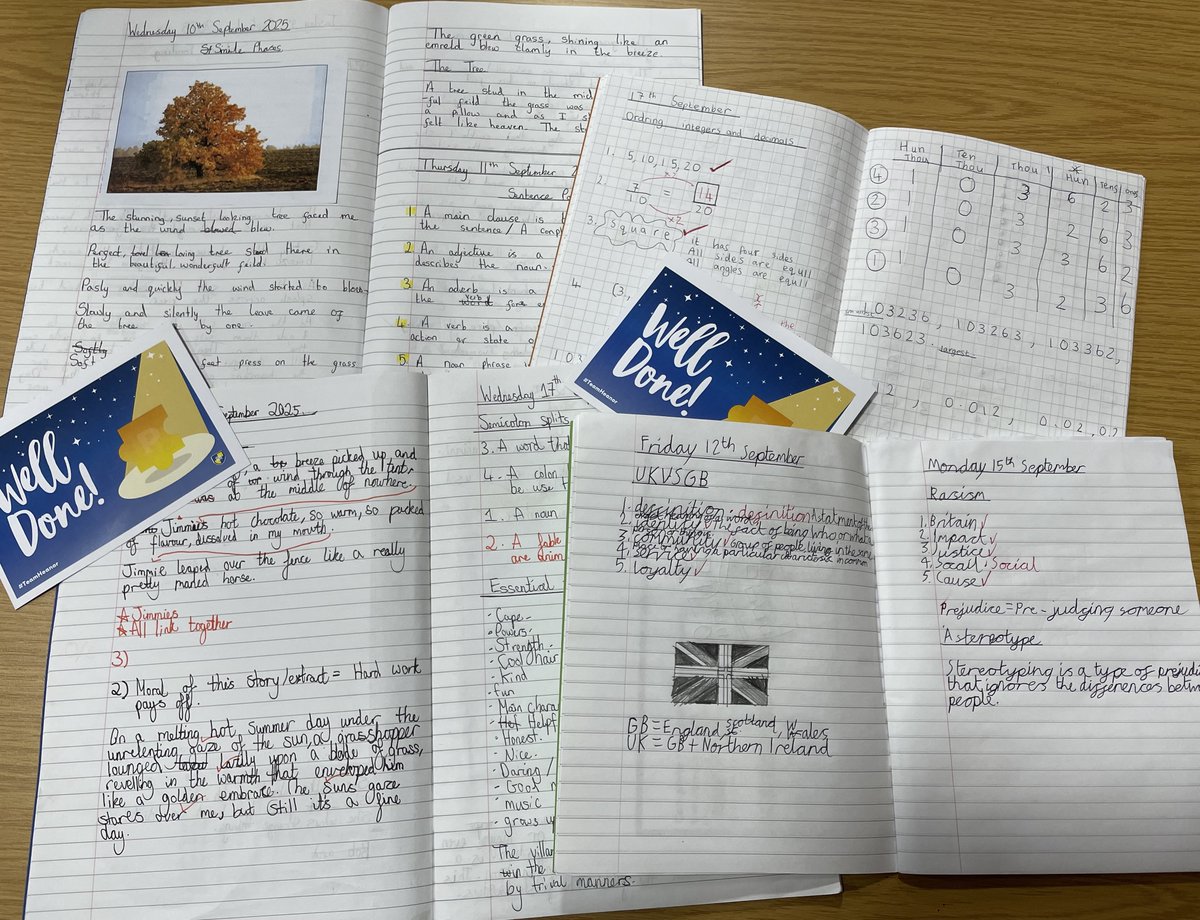 Wednesday 10th September 2025
Simile Phares.
The stunning, sunset looking tree faced me
as the wind blowed blew.
Perfect, loving tree stood there in
the beautiful wonderfull feild.
Pasly and quickly the wind started to blow
Slowly and silently the leave came of
the tree by one.
Softly
Soft feet press on the grass
The green grass, shining like an
emreld blew clamly in the breeze.
The Tree.
A tree stud in the mid
ful feild the grass was
a pillow and as I s
felt like heaven. The st
Thursday 11th September
Sentence Pa
1 A main clause is t
the sentence / A comp
2 An adjective is a
describes the noun.
3 An aderb is a
the word verb
4 A verb is a
action or state o
5 A noun phrase
17th September
Ordring integers and decimals
1. 5, 10, 15, 20
2. 7 = 14
10 20
×2
×2
3. square
it has four sides
All sides are equill
all angles are equill
4. (3.,
the
103
Hun Thou
Ten Thou
Thou
Hun
Tens
ones
4 1 0 3 6 2 3
2 1 0 3 2 6 3
3 1 0 3 3 6 2
1 1 0 3 2 3 6
103236, 103263, 103362,
103623. largest
2, 0.012, 0.02, 0.2
Well
Done!
#TeamHeanor
Well
Done!
#TeamHeanor
September 2025
, a breeze picked up, and
of wind through the tent.
was at the middle of nowhere.
Jimmies hot chocolate, so warm, so packed
of flavour, dissolved in my mouth.
Jimmie leaped over the fence like a really
pretty maned horse.
Jimmies
All link together
3)
2) Moral of this story/extract = Hard work
pays off.
On a melting hot, summer day under the
unrelenting gaze of the sun, a grasshopper
lounged lazily upon a blade of grass,
revelling in the warmth that enveloped him
like a golden embrace. The suns gaze
stares over me, but still it's a fine
day.
Wednesday 17th
Semicolon splits
3. A word that
4. A colon
be use t
1. A noun
2. A fable
are anim
Essential
- Cape
- Powers
- Strength
- Cool hair
- Kind
- Fun
- Main chara
- Hot Helpf
- Honest
- Nice
- Daring /
- Good
music
- grows u
The villa
win the
by trival manners.
Friday 12th September
UKVSGB
1. desfinition: desinition A statment of the
2. identity The fact of being who or what
3. community Group of people living in the same
place or having a particular characteristic in common
4. service
5. loyalty
GB = England, scotland, Wales
UK = GB + Northern Ireland
Monday 15th September
Rasism
1. Britain
2. Impact
3. Justice
4. Socail: Social
5. Cause
Prejudice = Pre-judging someone
A stereotype
Stereotyping is a type of prejudi
that ignores the differences betwe
people.